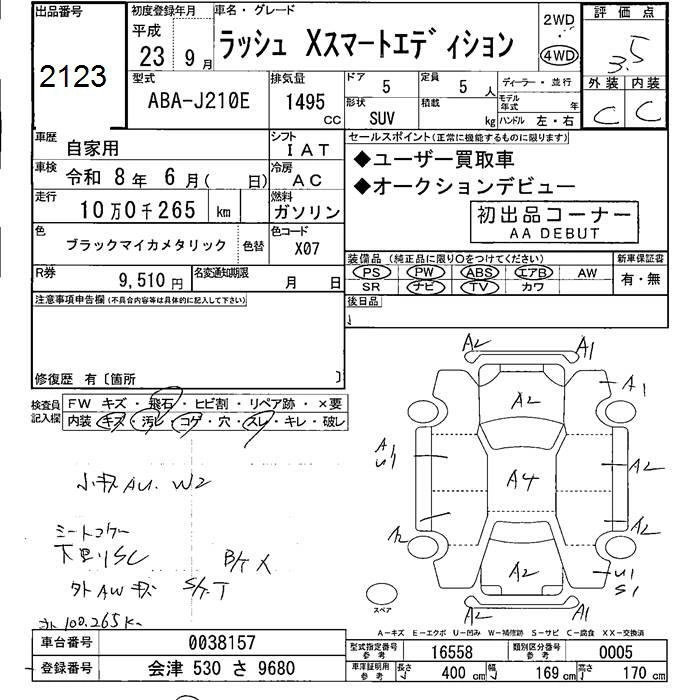 出品番号
2123
初度登録年月
平成
23 9月
車名・グレード
ラッシュ Xスマートエディション
2WD
・
4WD
評価点
3.5
型式
ABA-J210E
排気量
1495
CC
ドア
5
定員
5 人
形状
SUV
積載
kg
ディーラー・並行
モデル年式 年
ハンドル 左・右
外装 内装
C C
車歴
自家用
シフト
IAT
車検
令和 8年 6月( 日)
冷房
AC
走行
10万0千265 km
燃料
ガソリン
色
ブラックマイカメタリック
色替
色コード
X07
R券
9,510円
名変通知期限
月 日
セールスポイント(正常に機能するものに限ります)
◆ユーザー買取車
◆オークションデビュー
初出品コーナー
AA DEBUT
装備品 (純正品に限り○をつけてください)
新車保証書
PS PW ABS エアB AW
SR ナビ TV カワ
有・無
後日品
注意事項申告欄(不具合内容等は具体的に記入して下さい)
修復歴 有〔箇所 〕
検査員記入欄
FW キズ・飛石・ヒビ割・リペア跡・×要
内装 キズ・汚レ・コゲ・穴・スレ・キレ・破レ
小キズ AU. W2
ミートコワー
下廻りSC
B/ケ X
外AWキズ
S/ケ T
100,265K
A2
A1
A2
A1
A
U1
A4
A2
A2
A2
A2
U1
S1
A2
A1
スペア
A-キズ E-エクボ U-凹み W-補修跡 S-サビ C-腐食 XX-交換済
車台番号
0038157
登録番号
会津 530 さ 9680
型式指定番号
参考
16558
類別区分番号
参考
0005
車庫証明用
参考
長さ 400 cm
幅 169 cm
高さ 170 cm